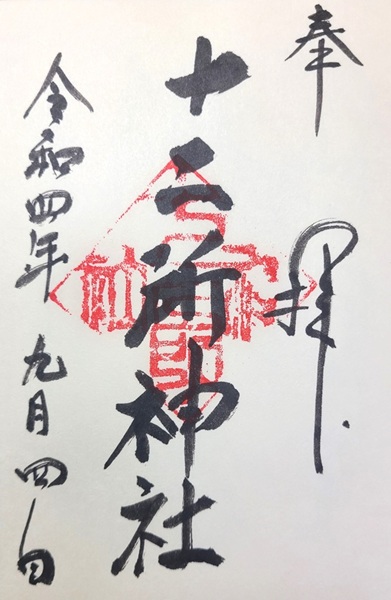 奉拝
十二所神社
令和四年九月四日